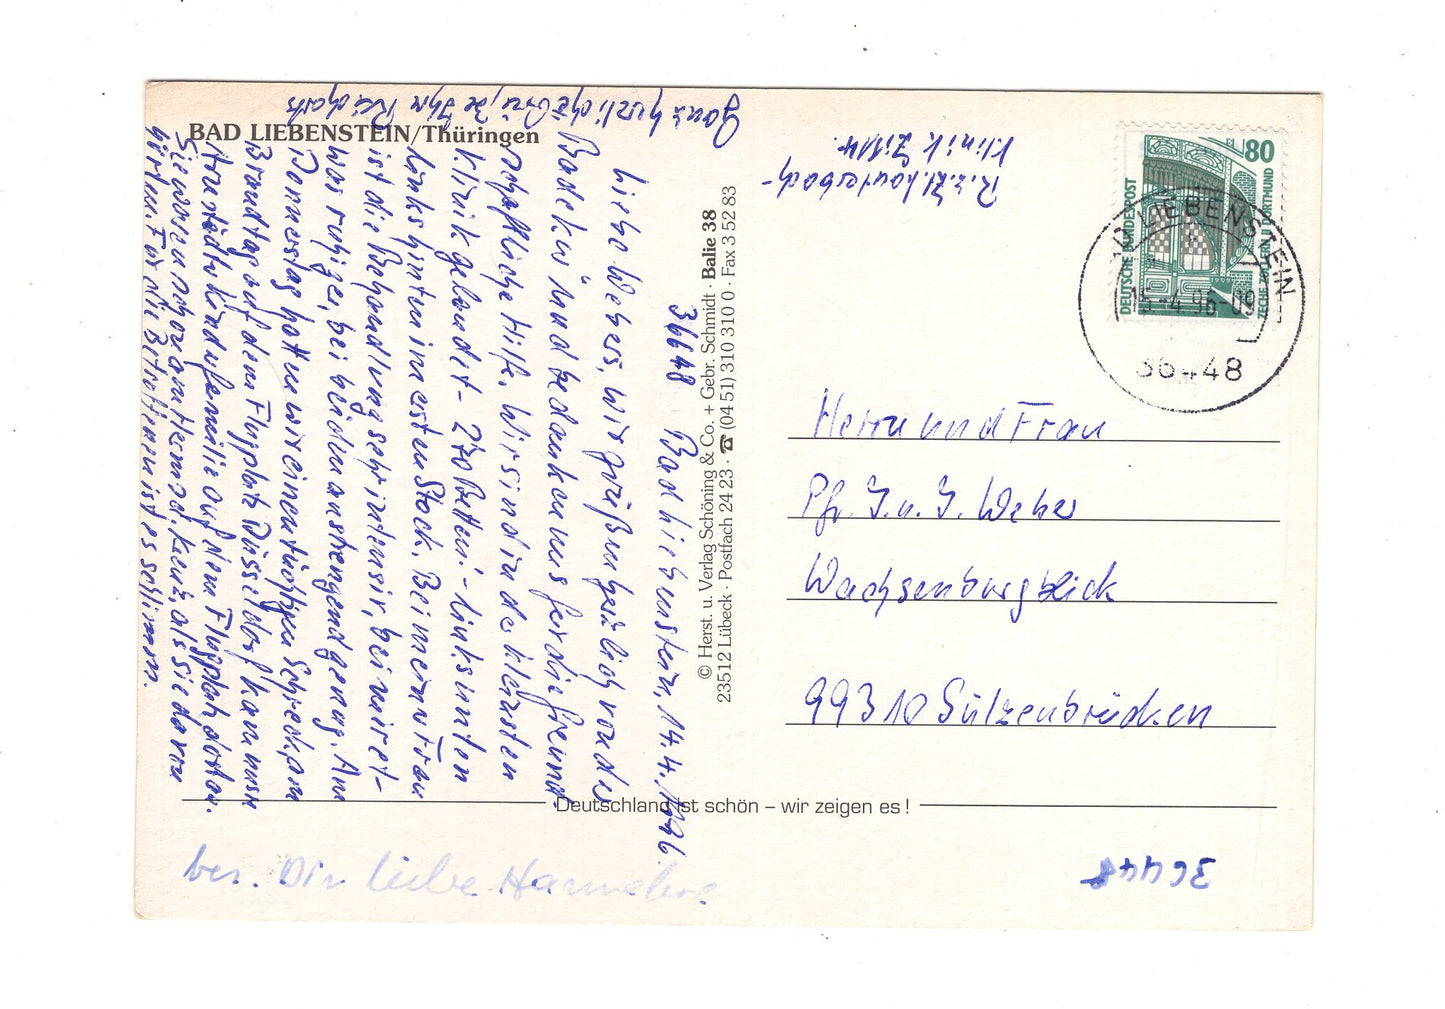 BAD LIEBENSTEIN/Thüringen
36448 Bad Liebenstein, 14.4.1996.
Liebe Webers, wir grüßen herzlich von der
Badekur und bedanken uns für die freund-
schaftliche Hilfe. Wir sind in der kleinsten
Klinik gelandet - 270 Betten! - links unten
links hinten im ersten Stock. Bei meiner Frau
ist die Behandlung sehr intensiv, bei mir et-
was ruhiger, bei beiden anstrengend genug. Am
Donnerstag hatten wir einen tüchtigen Schreck, am
Brandtag auf dem Flugplatz Düsseldorf kam unsre
Arnstädter Kinderfamilie auf dem Flugplatz dort an.
Sie waren schon am Remsd. Kreuz, als sie davon
hörten. Für die Betroffenen ist es schlimm.
Ganz herzliche Grüße Ihre
R. z. Zt. Lauterbach-
Klinik Zi 114.
© Herst. u. Verlag Schöning & Co. + Gebr. Schmidt · Balie 38
23512 Lübeck · Postfach 24 23 · ☎ (04 51) 310 310 0 · Fax 3 52 83
80
DEUTSCHE BUNDESPOST
ZECHE ZOLLERN II DORTMUND
LIEBENSTEIN
15.-4.96-09
36448
Herrn und Frau
Pfr. J. u. J. Weber
Wachsenburgblick
99310 Sülzenbrücken
Deutschland ist schön – wir zeigen es!
bes. Dir liebe Hannelore.
36448